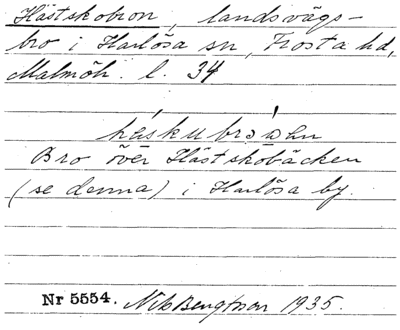 Hästskobron, landsvägs-
bro i Harlösa sn, Frosta hd,
Malmöh. l. 34
Bro över Hästskobäcken
(se denna) i Harlösa by.
Nr 5554. Nils Bengtsson 1935.